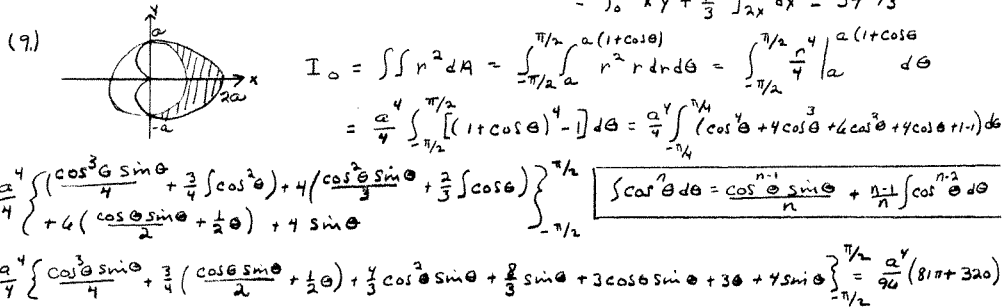 = ∫₀ x y + 1/3 ∫₂ₓ dx = 
(9.)
y
a
x
2a
-a
I₀ = ∬ r² dA = ∫_{-π/2}^{π/2} ∫_a^{a(1+cosθ)} r² r dr dθ = ∫_{-π/2}^{π/2} r⁴/4 |_a^{a(1+cosθ} dθ
= a⁴/4 ∫_{-π/2}^{π/2} [(1+cosθ)⁴ -1] dθ = a⁴/4 ∫_{-π/4}^{π/4} (cos⁴θ + 4cos³θ + 6cos²θ + 4cosθ + 1 - 1) dθ
a⁴/4 { (cos³θ sinθ/4 + 3/4 ∫cos²θ) + 4 (cos²θ sinθ/3 + 2/3 ∫cosθ)
+ 6 (cosθ sinθ/2 + 1/2 θ) + 4 sinθ }_{-π/2}^{π/2}
∫cosⁿθ dθ = cosⁿ⁻¹θ sinθ/n + n-1/n ∫cosⁿ⁻²θ dθ
a⁴/4 { cos³θ sinθ/4 + 3/4 (cosθ sinθ/2 + 1/2 θ) + 4/3 cos²θ sinθ + 8/3 sinθ + 3cosθ sinθ + 3θ + 4 sinθ }_{-π/2}^{π/2} = a⁴/96 (81π + 320)